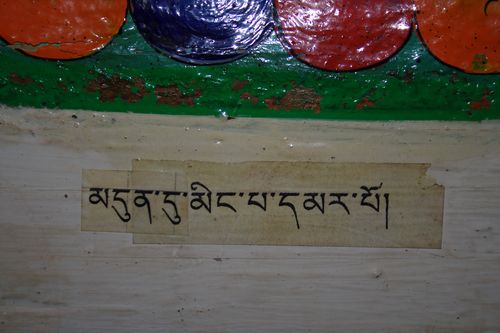 མདུན་དུ་མིང་པ་དམར་པོ།